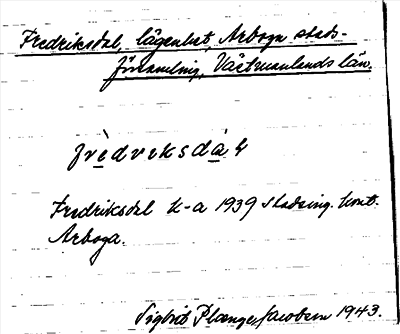 Fredriksdal, lägenhet, Arboga stads-
församling, Västmanlands län.
frè̱driksdà̱l
Fredriksdal K-a 1939 stadsing. kont.
Arboga.
Sigbrit Plænge Jacobson 1943.